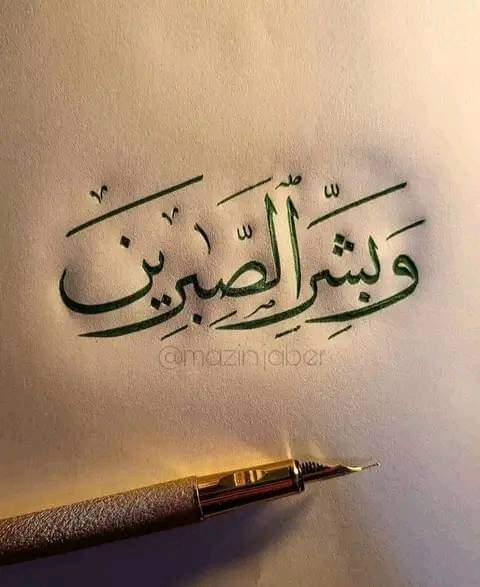 وَبَشِّرِ الصَّٰبِرِينَ
@mazinjaber